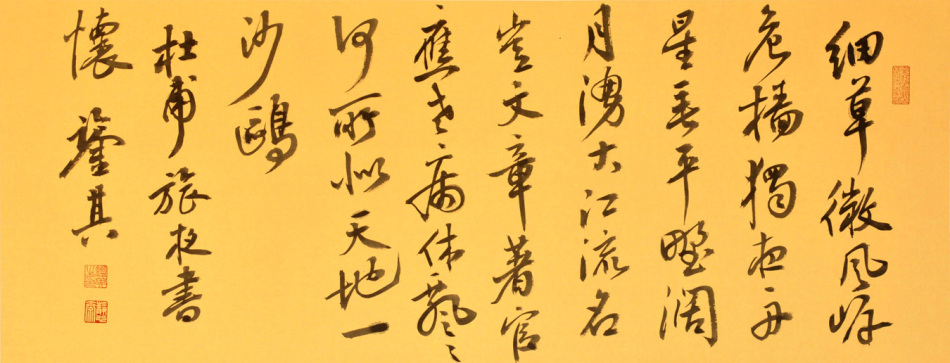 細草微風岸
危檣獨夜舟
星垂平野闊
月湧大江流名
豈文章著官
應老病休飄々
何所似天地一
沙鷗
杜甫旅夜書
懷 其